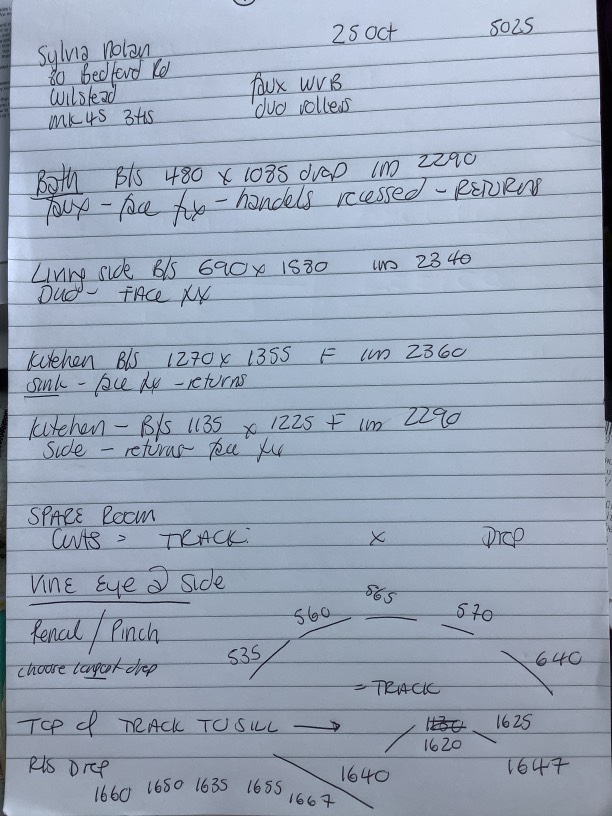 25 Oct 5025
Sylvia Nolan
80 Bedford Rd
Wilstead faux WVB
MK45 3HS duo rollers
Bath B/S 480 x 1085 drop 2290
faux - face fix - handels recessed - RETURNS
Living side B/S 690 x 1880 2340
Duo - FACE
Kitchen B/S 1270 x 1355 F 2360
sink - face fix - returns
Kitchen - B/S 1135 x 1225 F 2290
Side - returns face fix
SPARE ROOM
= TRACK: x Drop
VINE Eye @ Side
565
560 570
/ Pinch
535 640
choose longest drop
= TRACK
TOP of TRACK TO SILL → 1625
1620
R/S Drop 1640 1647
1660 1650 1635 1655 1667